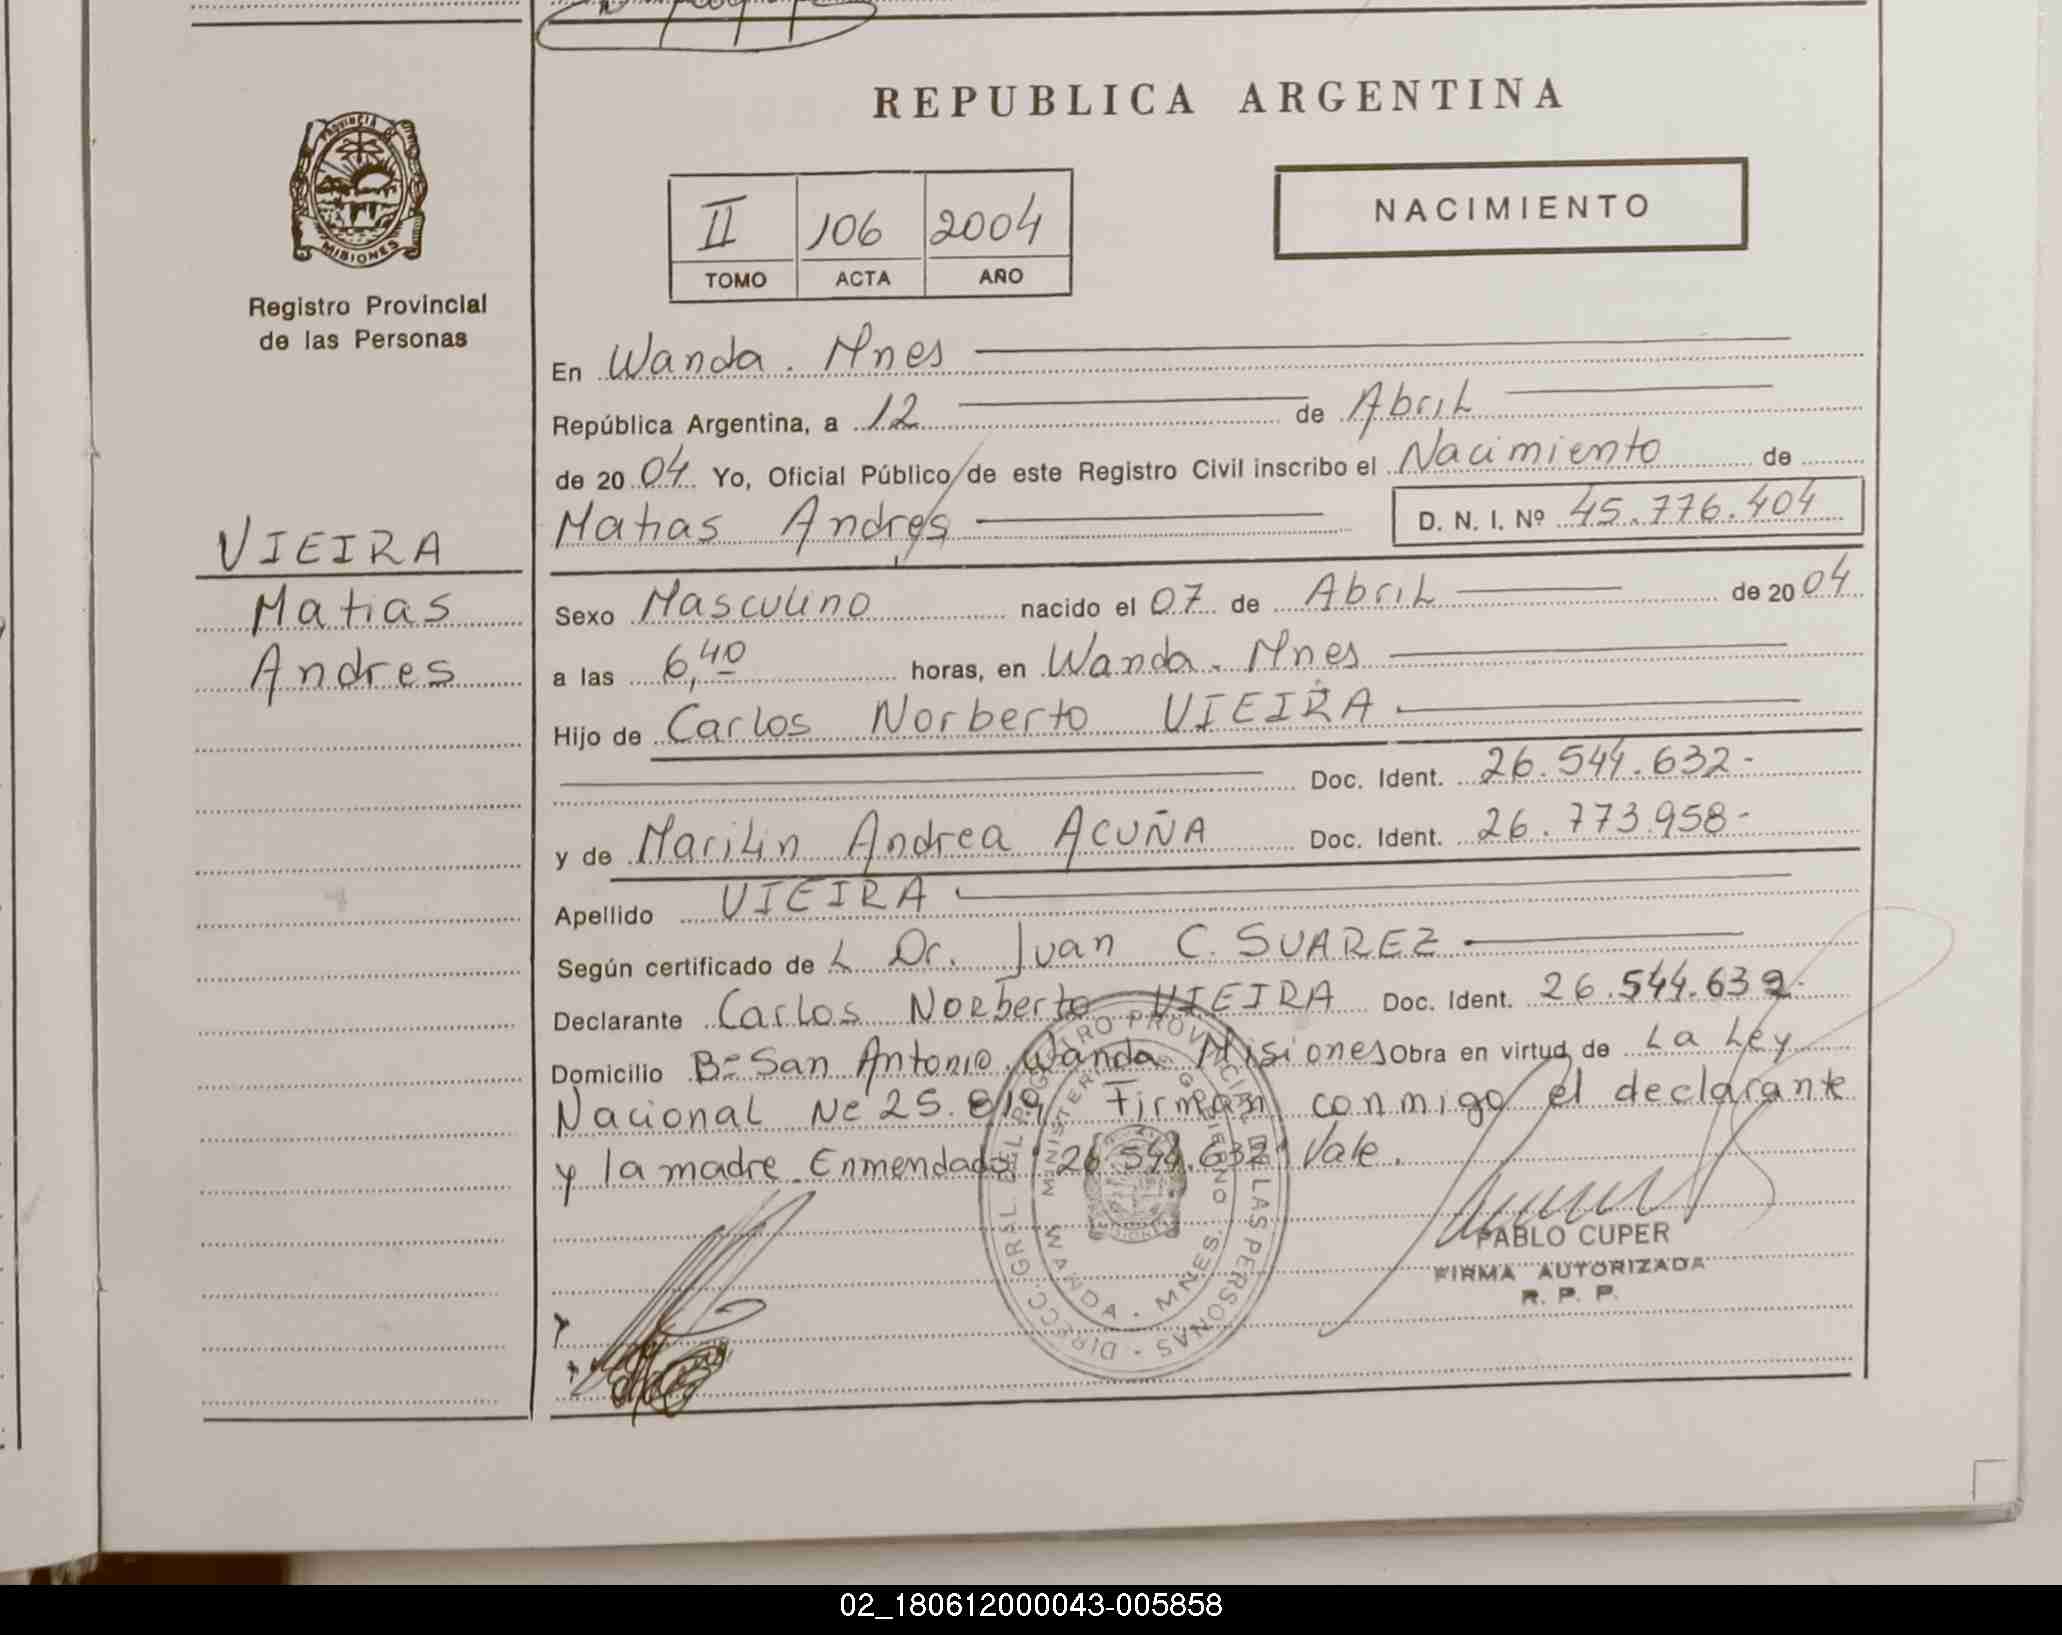 REPUBLICA ARGENTINA
PROVINCIA DE
MISIONES
Registro Provincial
de las Personas
II 106 2004
TOMO ACTA AÑO
NACIMIENTO
VIEIRA
Matias
Andres
En Wanda. Mnes
República Argentina, a 12 de Abril
de 2004 Yo, Oficial Público de este Registro Civil inscribo el Nacimiento de
Matias Andres D. N. I. Nº 45.776.404
Sexo Masculino nacido el 07 de Abril de 2004
a las 6,40 horas, en Wanda. Mnes
Hijo de Carlos Norberto VIEIRA
Doc. Ident. 26.544.632-
y de Marilin Andrea ACUÑA Doc. Ident. 26.773.958-
Apellido VIEIRA
Según certificado de L Dr. Juan C. SUAREZ
Declarante Carlos Norberto VIEIRA Doc. Ident. 26.544.632-
Domicilio Bº San Antonio. Wanda Misiones Obra en virtud de La Ley
Nacional Nº 25.819 Firman conmigo el declarante
y la madre. Enmendado "26.544.632" Vale.
DIRECC. GRAL. DEL REGISTRO PROVINCIAL DE LAS PERSONAS
MINISTERIO DE GOBIERNO
WANDA - MNES.
PABLO CUPER
FIRMA AUTORIZADA
R. P. P.
02_180612000043-005858